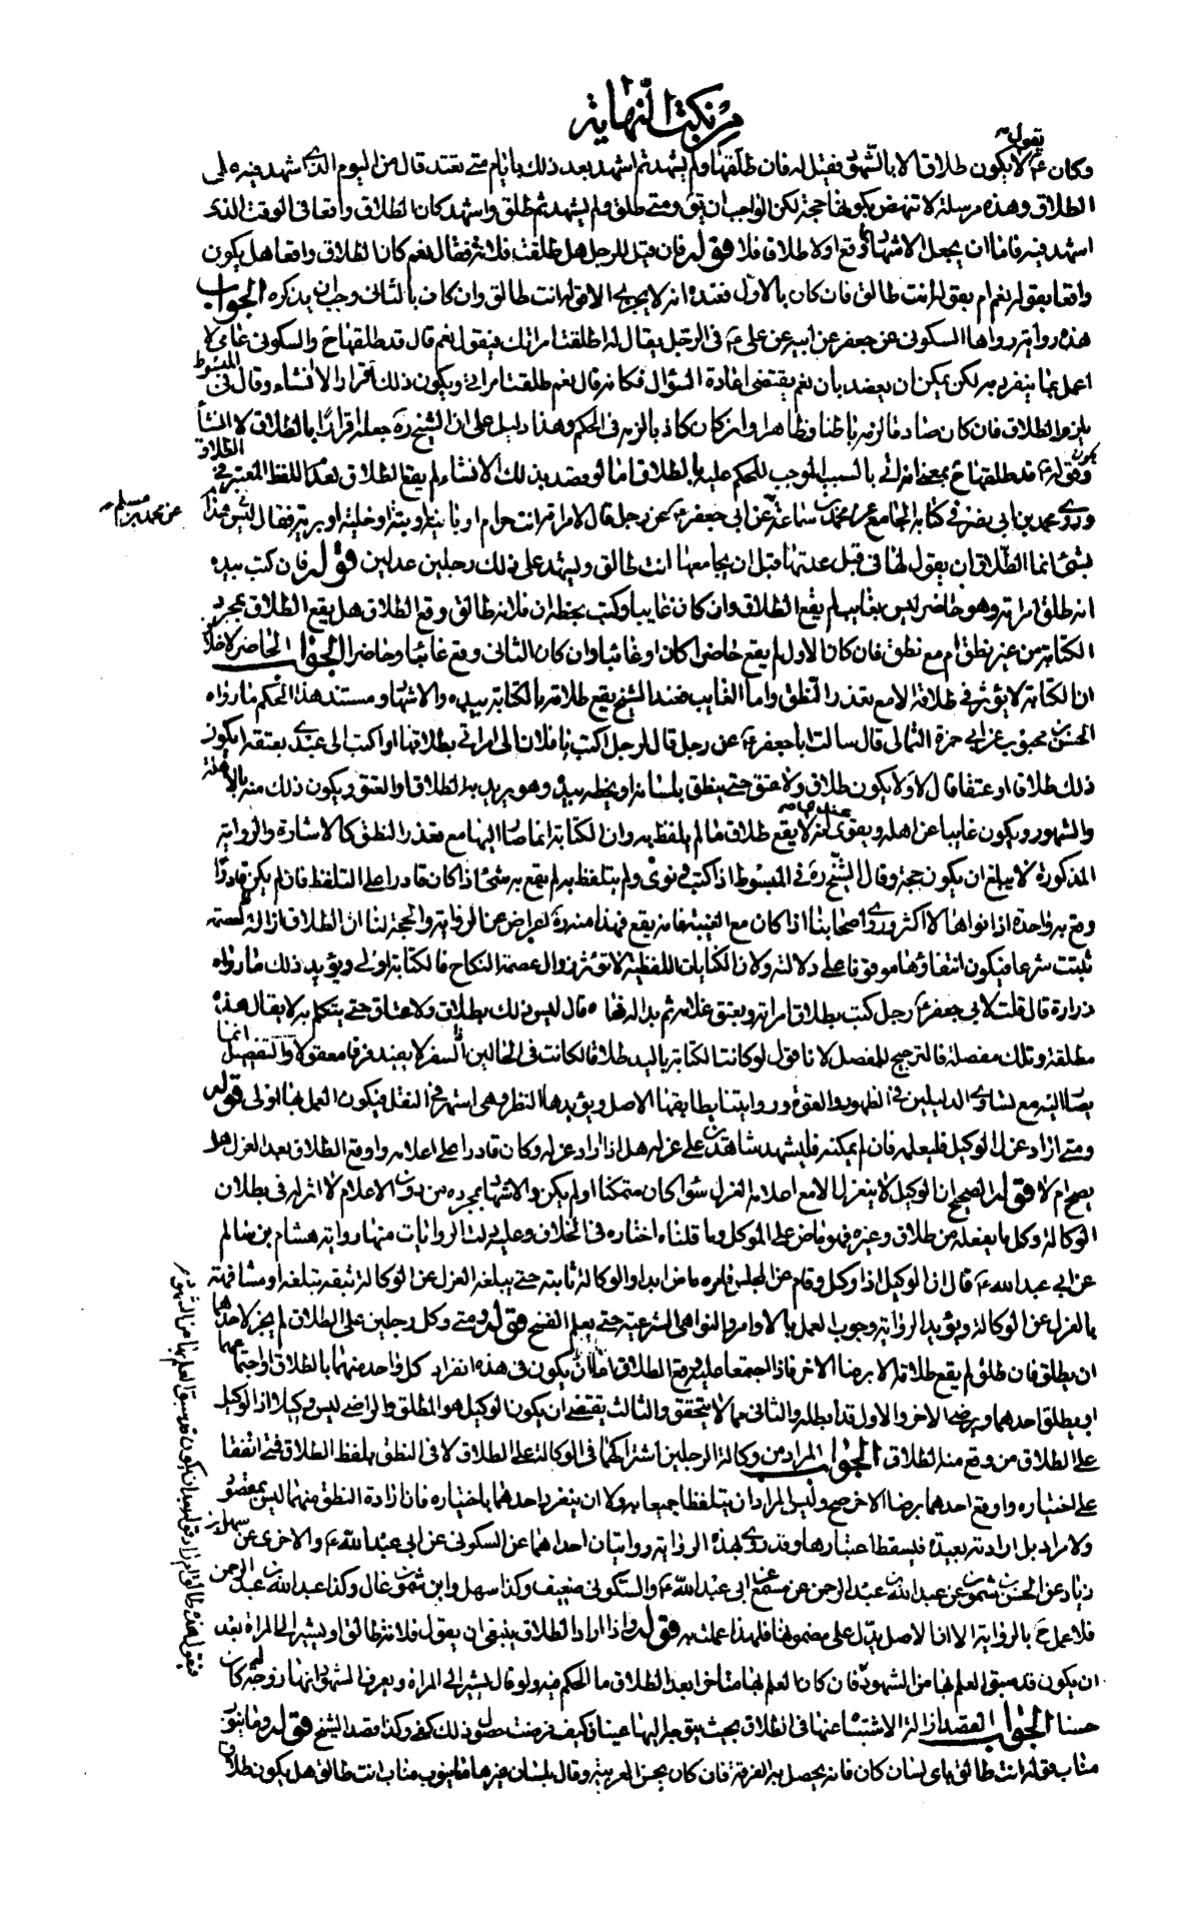 من نكت النهاية
وكان ع يقول لا يكون طلاق الا بالشهود فقيل له فان طلقها ولم يشهد ثم اشهد بعد ذلك بايام متى تعتد قال من اليوم الذى اشهد فيه على
الطلاق وهذه مرسلة لا تنهض بكونها حجة لكن الواجب ان يق ومتى طلق ولم يشهد ثم طلق واشهد كان الطلاق واقعا فى الوقت الذى
اشهد فيه فاما ان يجعل الاشهاد وقع اولا طلاقا فلا قوله فان قيل للرجل هل طلقت فلانة فقال نعم كان الطلاق واقعا هل يكون
واقعا بقوله نعم ام بقوله انت طالق فان كان بالاول فعنده انه لا يجزى الا قوله انت طالق وان كان بالثانى وجب ان يذكره الجواب
هذه رواية رواها السكونى عن جعفر عن ابيه عن على ع فى الرجل يقال له اطلقت امراتك فيقول نعم قال قد طلقها ح والسكونى عامى لا
اعمل بما ينفرد به لكن يمكن ان يعضد بان نعم يقتضى اعادة السؤال فكانه قال نعم طلقت امراتى ويكون ذلك اقرارا لا انشاء وقال فى المبسوط
يلزمه الطلاق فان كان صادقا لزمه باطنا وظاهرا وان كان كاذبا لزمه فى الحكم وهذا دليل على ان الشيخ ره جعله اقرارا بالطلاق لا انشأ
يكون قوله ع قد طلقها ح بمعنى انه اتى بالسبب الموجب للحكم عليه بالطلاق اما لو قصد بذلك الانشاء لم يقع الطلاق لعدم اللفظ المعتبر فى الطلاق
وروى محمد بن ابى نصر فى كتابه الجامع عن محمد بن سماعة عن محمد بن مسلم عن ابى جعفر ع عن رجل قال لامراته انت حرام او باينة او بتة او خلية او برية فقال ليس هذا
بشئ انما الطلاق ان يقول لها فى قبل عدتها قبل ان يجامعها انت طالق ويشهد على ذلك رجلين عدلين قوله فان كتب بيده
انه طلق امراته وهو حاضر ليس بغايب لم يقع الطلاق وان كان غايبا وكتب بخطه ان فلانة طالق وقع الطلاق هل يقع الطلاق بمجرد
الكتابة من غير نطق ام مع نطق فان كان الاول لم يقع حاضرا كان او غائبا وان كان الثانى وقع غائبا وحاضرا الجواب الحاضر لا خلاف
ان الكتابة لا يؤثر فى طلاقه الا مع تعذر النطق واما الغايب فعند الشيخ يقع طلاقه بالكتابة بيده والاشهاد ومستند هذا الحكم ما رواه
الحسن بن محبوب عن ابى حمزة الثمالى قال سالت ابا جعفر ع عن رجل قال لرجل اكتب يا فلان الى امراتى بطلاقها او اكتب الى عبدى بعتقه ايكون
ذلك طلاقا او عتقا قال لا ولا يكون طلاق ولا عتق حتى ينطق بلسانه او يخطه بيده وهو يريد به الطلاق او العتق ويكون ذلك منه بالاهلة
والشهور ويكون غايبا عن اهله ويقوى عندى انه لا يقع طلاق ما لم يلفظ به وان الكتابة انما يصار اليها مع تعذر النطق كالاشارة والرواية
المذكورة لا يبلغ ان يكون حجة وقال الشيخ ره فى المبسوط اذا كتب ونوى ولم يتلفظ به لم يقع به شئ اذا كان قادرا على التلفظ فان لم يكن قادرا
وقع به واحدة اذا نواها لا اكثر وروى اصحابنا اذا كان مع الغيبة فانه يقع فهذا منه ره اعراض عن الرواية والحجة لنا ان الطلاق ازالة لعصمة
ثبتت شرعا فيكون انتفاؤها موقوفا على دلالته ولان الكنايات اللفظية لا تؤثر زوال عصمة النكاح فالكتابة اولى ويؤيد ذلك ما رواه
زرارة قال قلت لابى جعفر ع رجل كتب بطلاق امراته وبعتق غلامه ثم بدا له فمحاه قال ليس ذلك بطلاق ولا عتاق حتى يتكلم به لا يقال هذه
مطلقة وتلك مفصلة فالترجيح للمفصل لانا نقول لو كانت الكتابة باليد طلاقا لكانت فى الحالين اذ السفر لا يفيد فرقا معقولا والتفصيل انما
يصار اليه مع تساوى الدليلين فى الظهور والقوة وروايتنا يطابقها الاصل ويؤيدها النظر وهى اشهر فى النقل فيكون العمل بها اولى قوله
ومتى اراد عزل الوكيل فليعلمه فان لم يمكنه فليشهد شاهدين على عزله هل اذا اراد عزله وكان قادرا على اعلامه واوقع الطلاق بعد العزل هل
يصح ام لا قوله الصحيح ان الوكيل لا ينعزل الا مع اعلامه العزل سواء كان متمكنا او لم يكن والاشهاد بمجرده من دون الاعلام لا اثر له فى بطلان
الوكالة وكل ما يفعله من طلاق وغيره فهو ماض على الموكل وما قلناه اختاره فى الخلاف وعليه دلت الروايات منها رواية هشام بن سالم
عن ابى عبد الله ع قال ان الوكيل اذا وكل وقام عن المجلس فامره ماض ابدا والوكالة ثابتة حتى يبلغه العزل عن الوكالة بثقة تبلغه او مشافهة
بالعزل عن الوكالة ويؤيد الرواية وجوب العمل بالاوامر والنواهى الشرعية حتى يعلم الفسخ قوله ومتى وكل رجلين على الطلاق لم يجز لاحدهما
ان يطلق فان طلق لم يقع طلاقه الا برضا الاخر فاذا اجتمعا عليه وقع الطلاق اما ان يكون فى هذه انفراد كل واحد منهما بالطلاق او اجتماعهما
او يطلق احدهما ويرضى الاخر والاول قد ابطله والثانى مما لا يتحقق والثالث يقتضى ان يكون الوكيل هو المطلق والراضى ليس وكيلا اذ الوكيل
على الطلاق من وقع منه الطلاق الجواب المراد من وكالة الرجلين اشتراكهما فى الوكالة على الطلاق لا فى النطق بلفظ الطلاق فمتى اتفقا
على اختياره واوقع احدهما برضا الاخر صح وليس المراد ان يتلفظا جميعا به ولا ان ينفرد احدهما باختياره فان ارادة النطق منهما ليس بمقصود
ولا مراد بل ارادته بعيدة فيسقط اعتبارها وقد روى بهذه الرواية روايتان احداهما عن السكونى عن ابى عبد الله ع والاخرى عن سهل بن
زياد عن الحسن بن شمون عن عبد الله بن عبد الرحمن عن مسمع عن ابى عبد الله ع والسكونى ضعيف وكذا سهل وابن شمون غال وكذا عبد الله بن عبد الرحمن
فلا عمل ح بالرواية الا ان الاصل يدل على مضمونها فلهذا عملت به قوله واذا اراد الطلاق ينبغى ان يقول فلانة طالق او يشير الى المراة بعد
ان يكون قد سبق العلم بها من الشهود فان كان العلم بها متاخرا بعد الطلاق ما الحكم فيه ولو قال يشير الى المراة ويعرف الشهود انها زوجته كان
حسنا الجواب القصد ازالة الاشتباه عنها فى الطلاق بحيث يتوجه اليها عينا فكيف فرضت حصول ذلك كفى وكذا قصد الشيخ قوله وما ينوب
مناب قوله انت طالق باى لسان كان فانه يحصل به الفرقة فان كان يحسن العربية وقال بلسان غيرها ما ينوب مناب انت طالق هل يكون طلاق
عن محمد بن مسلم
فيقول هذه طالق ام زاد قوله بعد ان يكون قد سبق العلم بها من الشهود